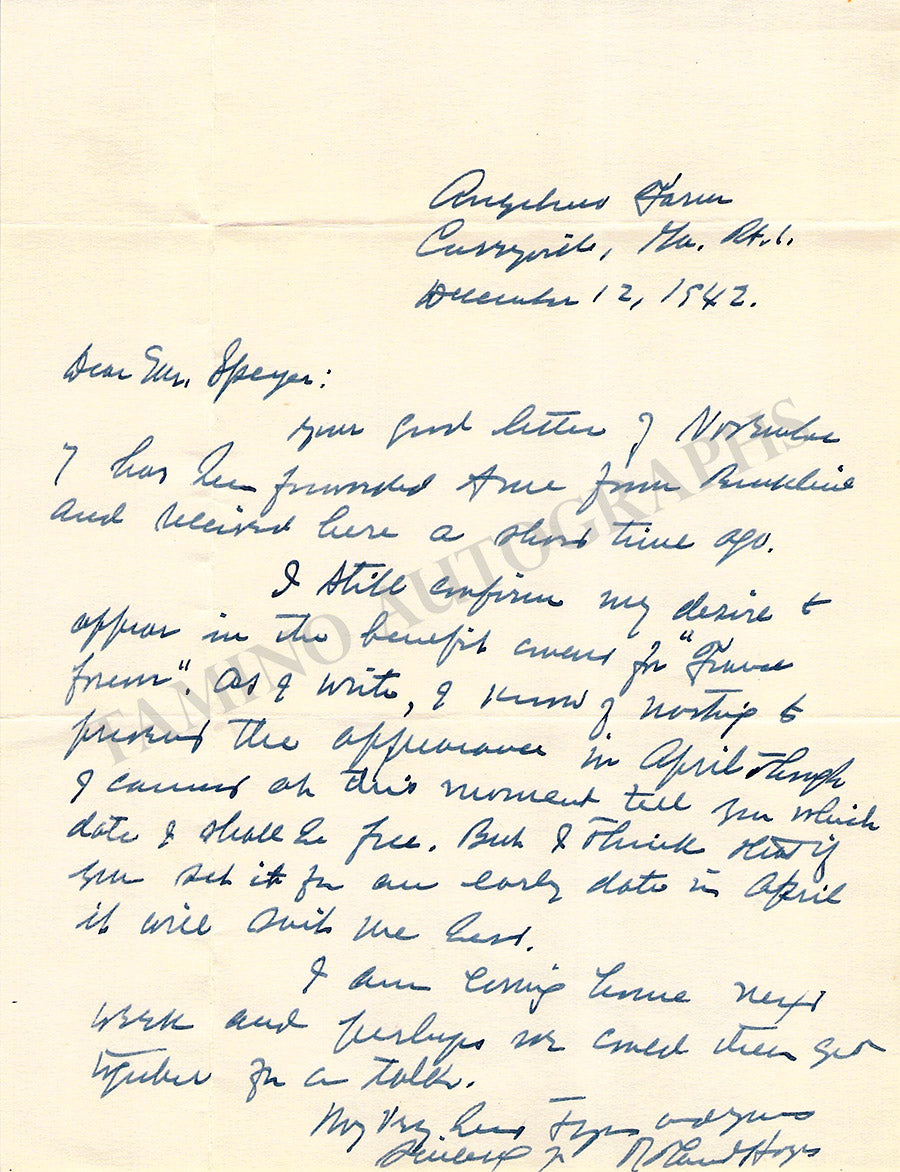 Angelmo Farm
Curryville, Ga. Rt. 1.
December 12, 1942.
Dear Mr. Speyer:
Your good letter of November
7 has been forwarded me from Brookline
and received here a short time ago.
I still confirm my desire to
appear in the benefit concert for "France
forever". As I write, I know of nothing to
prevent the appearance in April though
I cannot at this moment tell you which
date I shall be free. But I think that if
you set it for an early date in April
it will suit me best.
I am coming home next
week and perhaps we could then get
together for a talk.
My very best to you and yours
Sincerely Roland Hayes
TAMINO AUTOGRAPHS